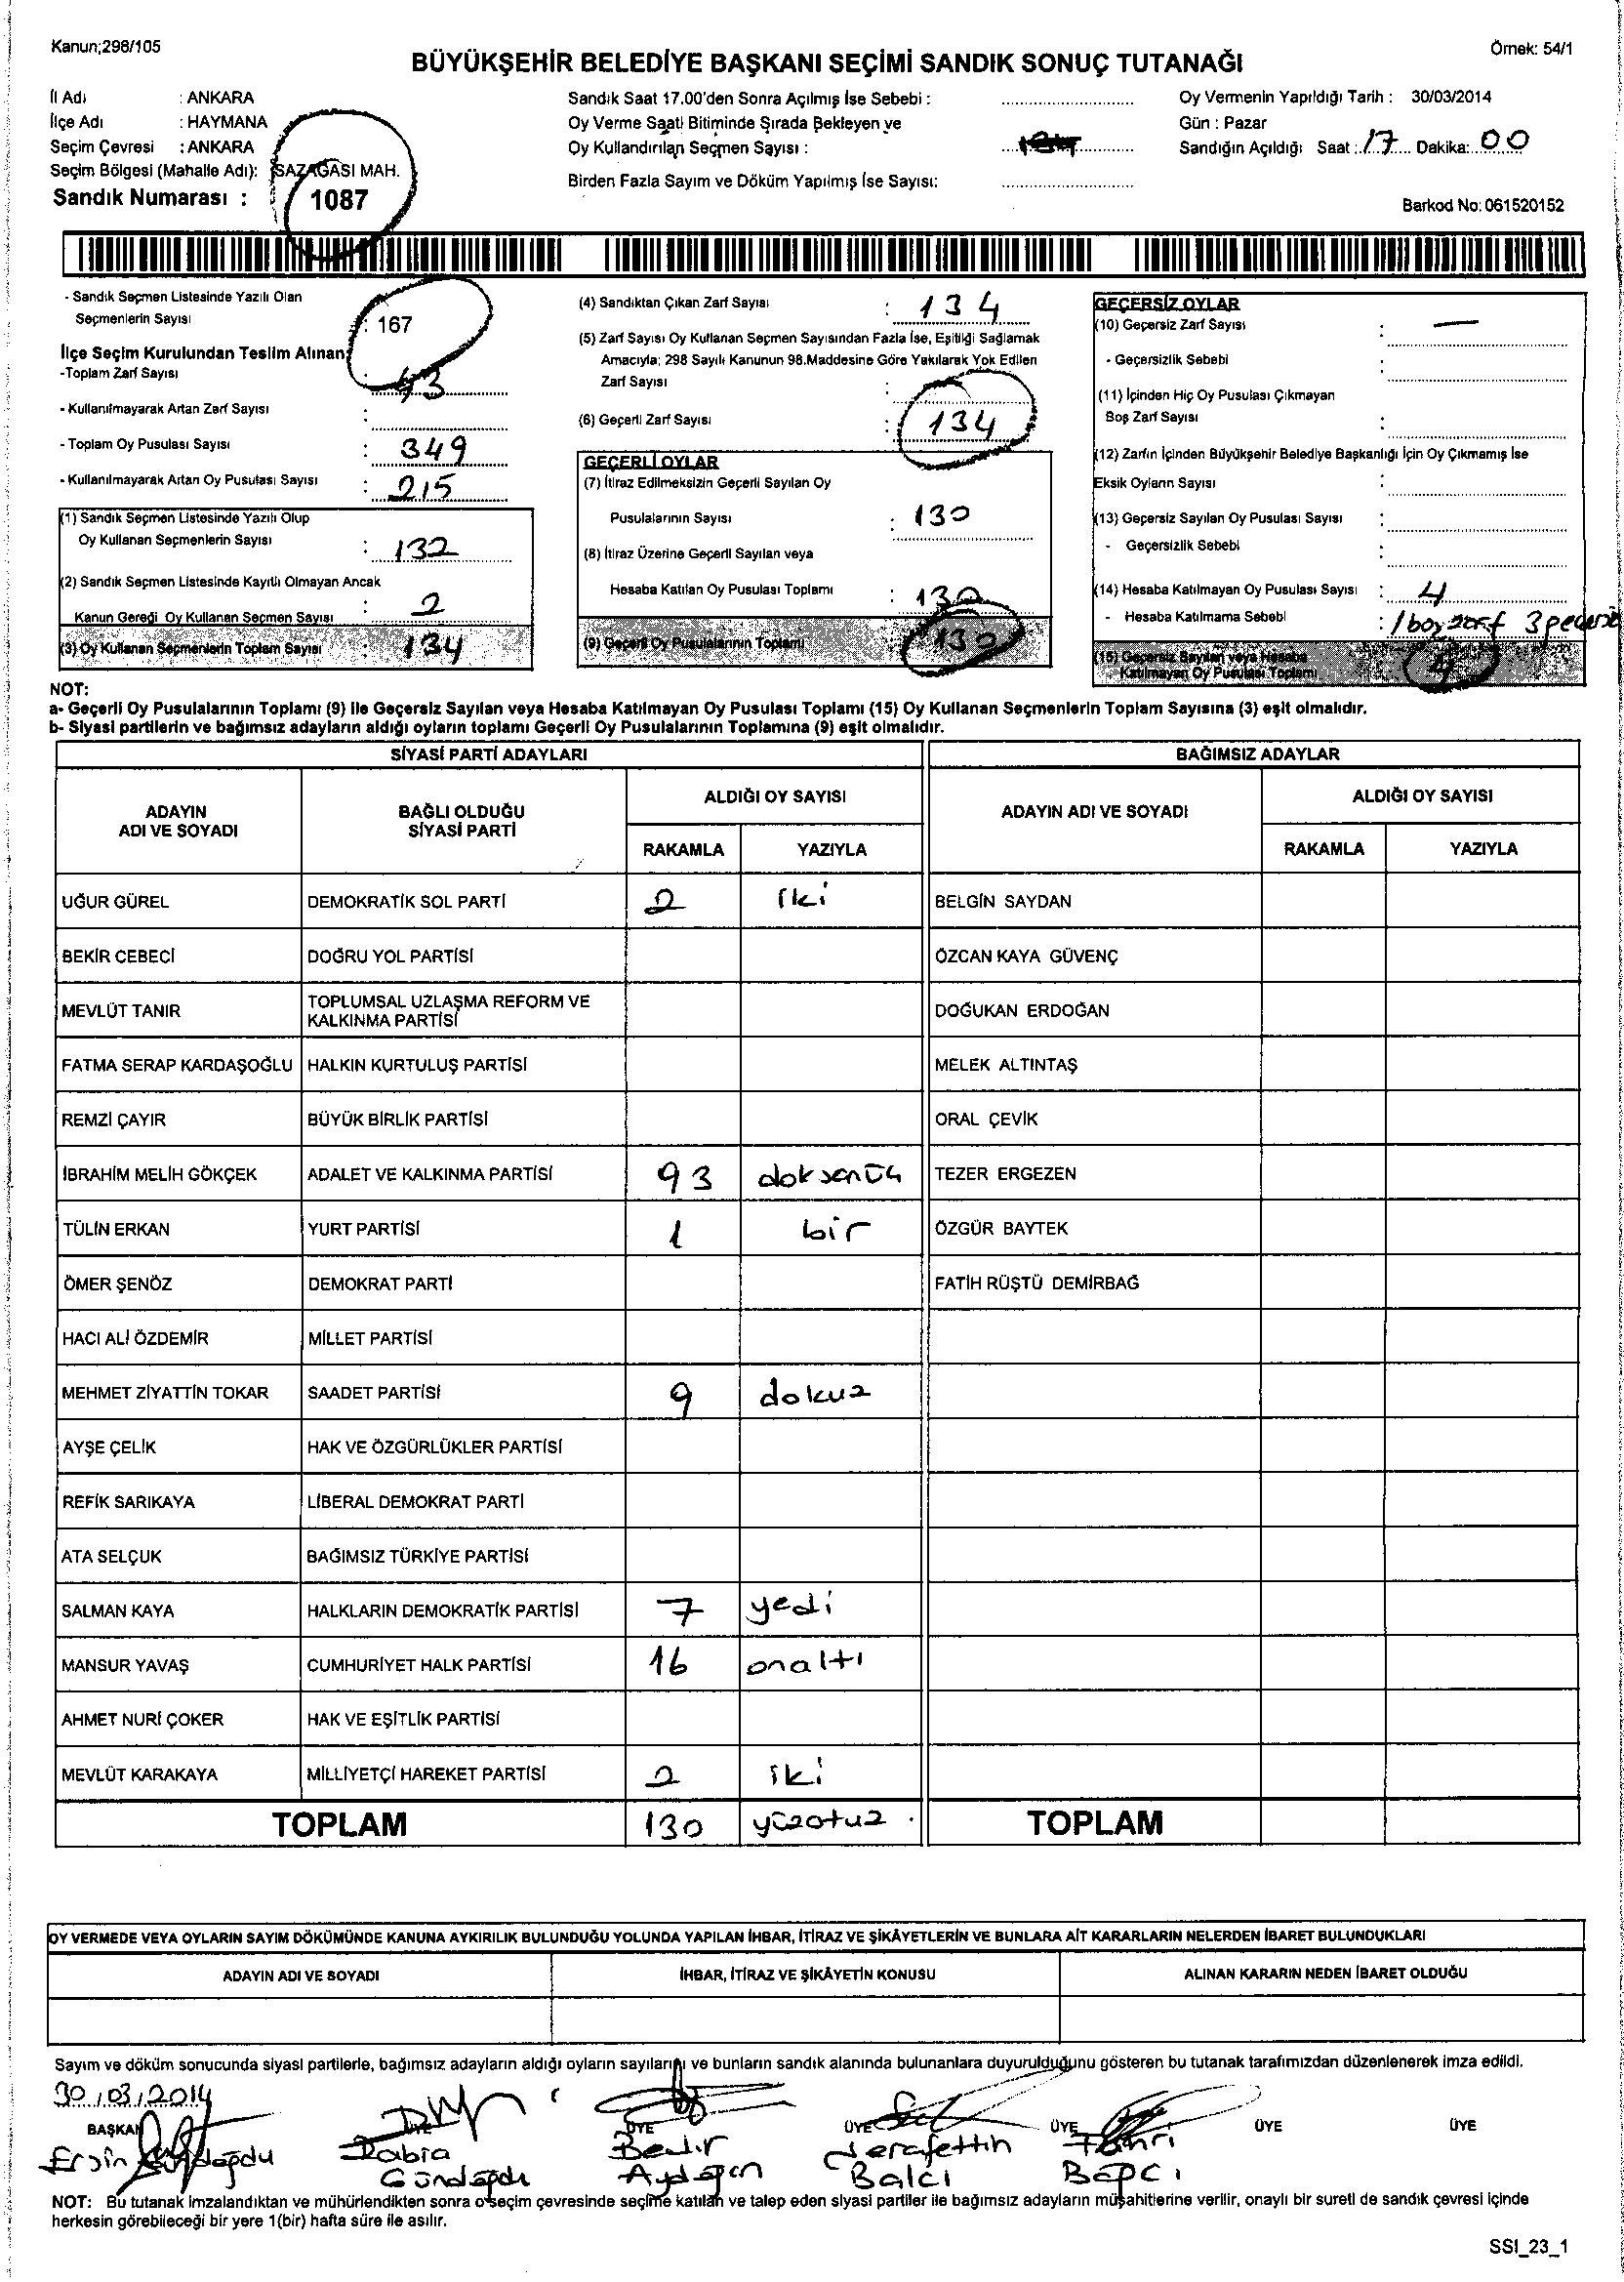 Kanun;298/105
Örnek: 54/1
BÜYÜKŞEHİR BELEDİYE BAŞKANI SEÇİMİ SANDIK SONUÇ TUTANAĞI
İl Adı : ANKARA
İlçe Adı : HAYMANA
Seçim Çevresi : ANKARA
Seçim Bölgesi (Mahalle Adı): SAZAĞASI MAH.
Sandık Numarası : 1087
Sandık Saat 17.00'den Sonra Açılmış İse Sebebi :
Oy Verme Saati Bitiminde Sırada Bekleyen ve
Oy Kullandırılan Seçmen Sayısı :
Birden Fazla Sayım ve Döküm Yapılmış İse Sayısı:
Oy Vermenin Yapıldığı Tarih : 30/03/2014
Gün : Pazar
Sandığın Açıldığı Saat : 17 Dakika: 00
Barkod No: 061520152
- Sandık Seçmen Listesinde Yazılı Olan
Seçmenlerin Sayısı : 167
İlçe Seçim Kurulundan Teslim Alınan
-Toplam Zarf Sayısı :
- Kullanılmayarak Artan Zarf Sayısı :
- Toplam Oy Pusulası Sayısı : 349
- Kullanılmayarak Artan Oy Pusulası Sayısı : 215
(1) Sandık Seçmen Listesinde Yazılı Olup
Oy Kullanan Seçmenlerin Sayısı : 132
(2) Sandık Seçmen Listesinde Kayıtlı Olmayan Ancak
Kanun Gereği Oy Kullanan Seçmen Sayısı : 2
(3) Oy Kullanan Seçmenlerin Toplam Sayısı : 134
(4) Sandıktan Çıkan Zarf Sayısı : 134
(5) Zarf Sayısı Oy Kullanan Seçmen Sayısından Fazla İse, Eşitliği Sağlamak
Amacıyla; 298 Sayılı Kanunun 98.Maddesine Göre Yakılarak Yok Edilen
Zarf Sayısı :
(6) Geçerli Zarf Sayısı : 134
GEÇERLİ OYLAR
(7) İtiraz Edilmeksizin Geçerli Sayılan Oy
Pusulalarının Sayısı : 130
(8) İtiraz Üzerine Geçerli Sayılan veya
Hesaba Katılan Oy Pusulası Toplamı : 130
(9) Geçerli Oy Pusulalarının Toplamı 130
GEÇERSİZ OYLAR
(10) Geçersiz Zarf Sayısı : —
- Geçersizlik Sebebi :
(11) İçinden Hiç Oy Pusulası Çıkmayan
Boş Zarf Sayısı :
(12) Zarfın İçinden Büyükşehir Belediye Başkanlığı İçin Oy Çıkmamış İse
Eksik Oyların Sayısı :
(13) Geçersiz Sayılan Oy Pusulası Sayısı :
- Geçersizlik Sebebi :
(14) Hesaba Katılmayan Oy Pusulası Sayısı : 4
- Hesaba Katılmama Sebebi : 1 boş zarf 3
(15) Geçersiz Sayılan veya Hesaba
Katılmayan Oy Pusulası Toplamı 4
NOT:
a- Geçerli Oy Pusulalarının Toplamı (9) ile Geçersiz Sayılan veya Hesaba Katılmayan Oy Pusulası Toplamı (15) Oy Kullanan Seçmenlerin Toplam Sayısına (3) eşit olmalıdır.
b- Siyasi partilerin ve bağımsız adayların aldığı oyların toplamı Geçerli Oy Pusulalarının Toplamına (9) eşit olmalıdır.
SİYASİ PARTİ ADAYLARI BAĞIMSIZ ADAYLAR
ADAYIN
ADI VE SOYADI
BAĞLI OLDUĞU
SİYASİ PARTİ
ALDIĞI OY SAYISI
RAKAMLA YAZIYLA
ADAYIN ADI VE SOYADI
ALDIĞI OY SAYISI
RAKAMLA YAZIYLA
UĞUR GÜREL DEMOKRATİK SOL PARTİ 2 iki BELGİN SAYDAN
BEKİR CEBECİ DOĞRU YOL PARTİSİ ÖZCAN KAYA GÜVENÇ
MEVLÜT TANIR TOPLUMSAL UZLAŞMA REFORM VE
KALKINMA PARTİSİ DOĞUKAN ERDOĞAN
FATMA SERAP KARDAŞOĞLU HALKIN KURTULUŞ PARTİSİ MELEK ALTINTAŞ
REMZİ ÇAYIR BÜYÜK BİRLİK PARTİSİ ORAL ÇEVİK
İBRAHİM MELİH GÖKÇEK ADALET VE KALKINMA PARTİSİ 93 doksanüç TEZER ERGEZEN
TÜLİN ERKAN YURT PARTİSİ 1 bir ÖZGÜR BAYTEK
ÖMER ŞENÖZ DEMOKRAT PARTİ FATİH RÜŞTÜ DEMİRBAĞ
HACI ALİ ÖZDEMİR MİLLET PARTİSİ
MEHMET ZİYATTİN TOKAR SAADET PARTİSİ 9 dokuz
AYŞE ÇELİK HAK VE ÖZGÜRLÜKLER PARTİSİ
REFİK SARIKAYA LİBERAL DEMOKRAT PARTİ
ATA SELÇUK BAĞIMSIZ TÜRKİYE PARTİSİ
SALMAN KAYA HALKLARIN DEMOKRATİK PARTİSİ 7 yedi
MANSUR YAVAŞ CUMHURİYET HALK PARTİSİ 16 onaltı
AHMET NURİ ÇOKER HAK VE EŞİTLİK PARTİSİ
MEVLÜT KARAKAYA MİLLİYETÇİ HAREKET PARTİSİ 2 iki
TOPLAM 130 yüzotuz TOPLAM
OY VERMEDE VEYA OYLARIN SAYIM DÖKÜMÜNDE KANUNA AYKIRILIK BULUNDUĞU YOLUNDA YAPILAN İHBAR, İTİRAZ VE ŞİKÂYETLERİN VE BUNLARA AİT KARARLARIN NELERDEN İBARET BULUNDUKLARI
ADAYIN ADI VE SOYADI İHBAR, İTİRAZ VE ŞİKÂYETİN KONUSU ALINAN KARARIN NEDEN İBARET OLDUĞU
Sayım ve döküm sonucunda siyasi partilerle, bağımsız adayların aldığı oyların sayılarını ve bunların sandık alanında bulunanlara duyurulduğunu gösteren bu tutanak tarafımızdan düzenlenerek imza edildi.
30/03/2014
BAŞKAN ÜYE ÜYE ÜYE ÜYE ÜYE ÜYE
Ersin Rabia Bekir Şerafettin Fahri
Gündoğdu Aydoğan Balcı Bağcı
NOT: Bu tutanak imzalandıktan ve mühürlendikten sonra o seçim çevresinde seçime katılan ve talep eden siyasi partiler ile bağımsız adayların müşahitlerine verilir, onaylı bir sureti de sandık çevresi içinde
herkesin görebileceği bir yere 1(bir) hafta süre ile asılır.
SSI_23_1